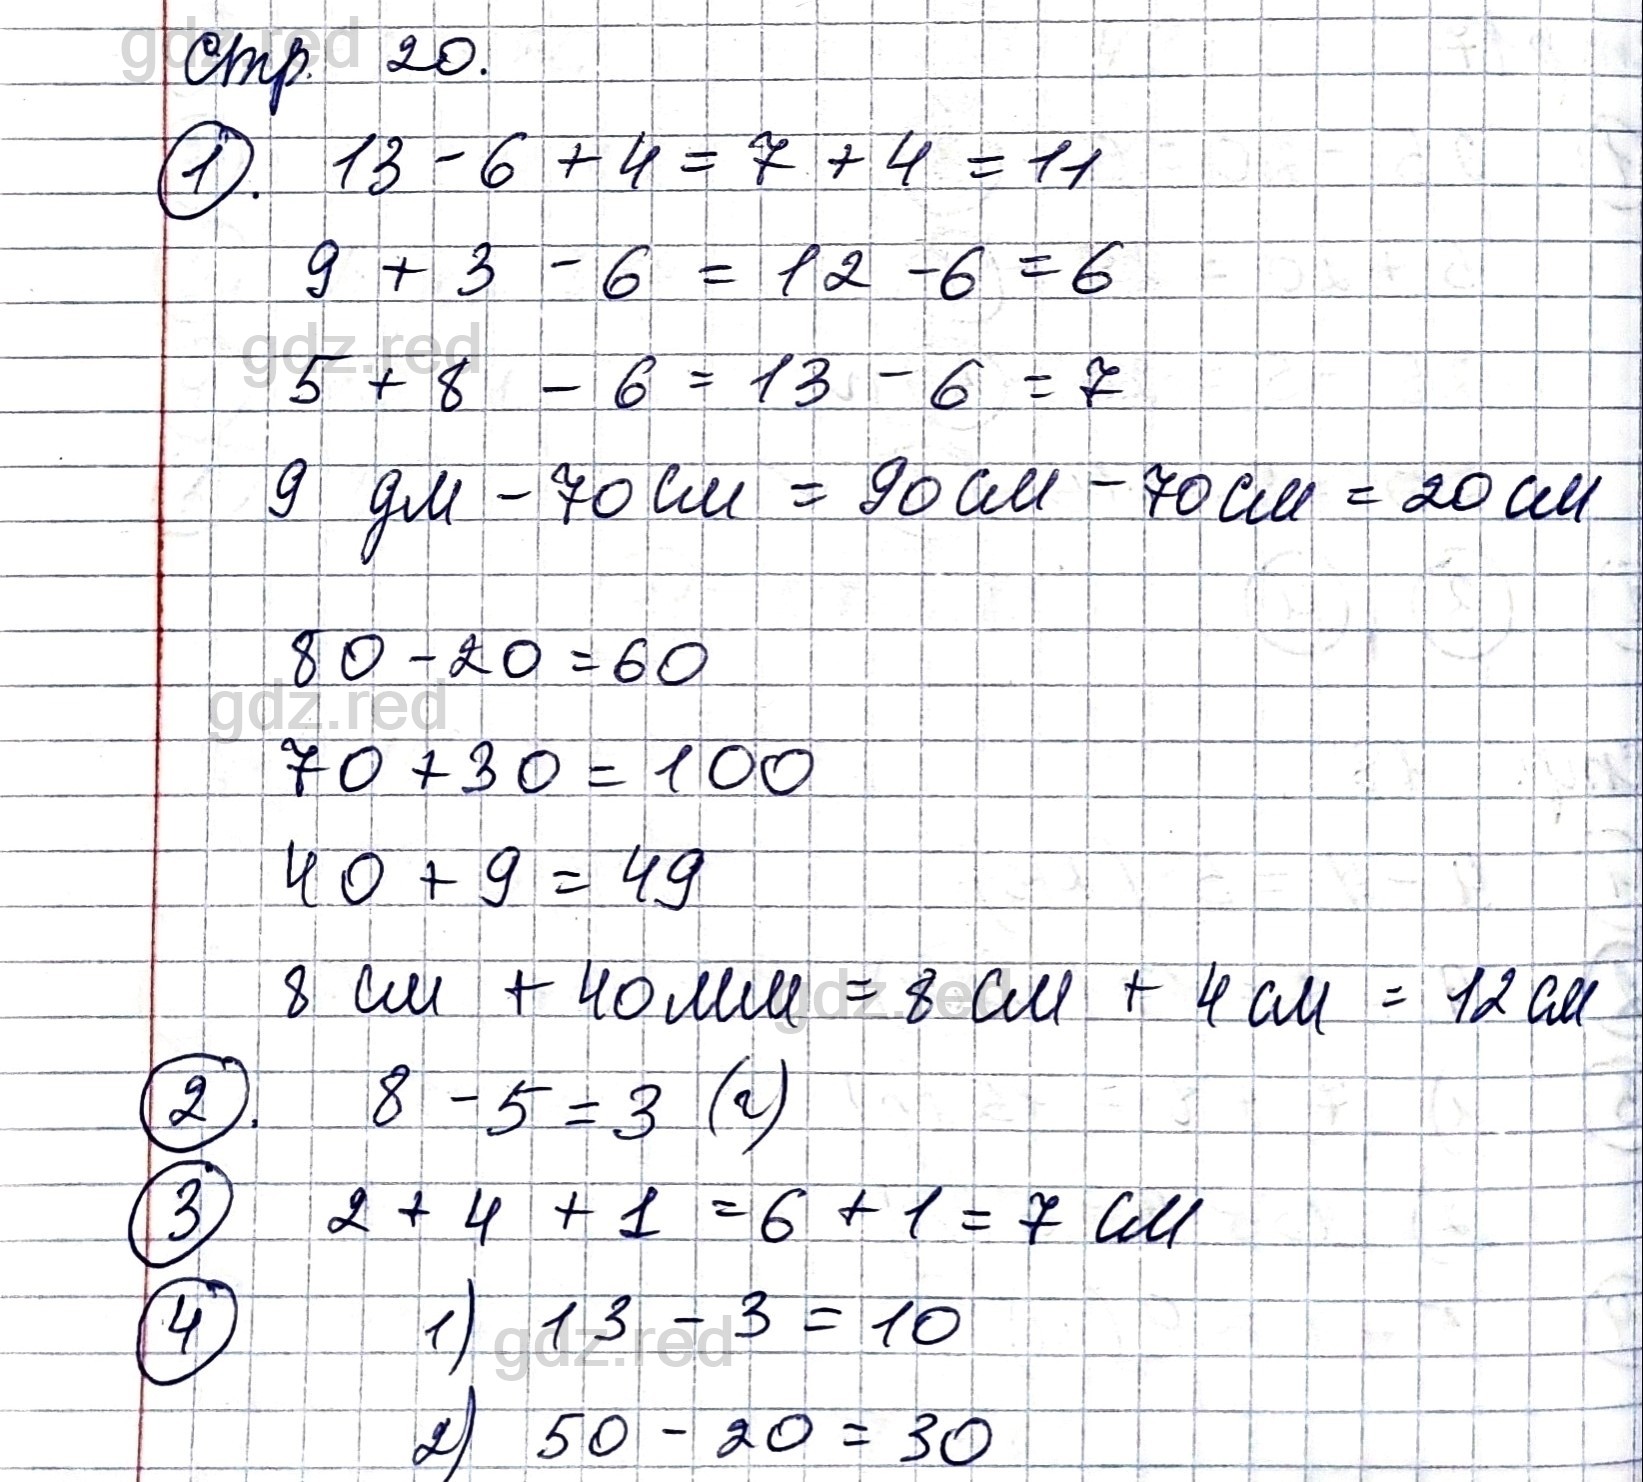 Стр. 20.
1. 13 - 6 + 4 = 7 + 4 = 11
9 + 3 - 6 = 12 - 6 = 6
5 + 8 - 6 = 13 - 6 = 7
9 дм - 70 см = 90 см - 70 см = 20 см
80 - 20 = 60
70 + 30 = 100
40 + 9 = 49
8 см + 40 мм = 8 см + 4 см = 12 см
2. 8 - 5 = 3 (г)
3 2 + 4 + 1 = 6 + 1 = 7 см
4 1) 13 - 3 = 10
2) 50 - 20 = 30
gdz.red
gdz.red
gdz.red
gdz.red
gdz.red